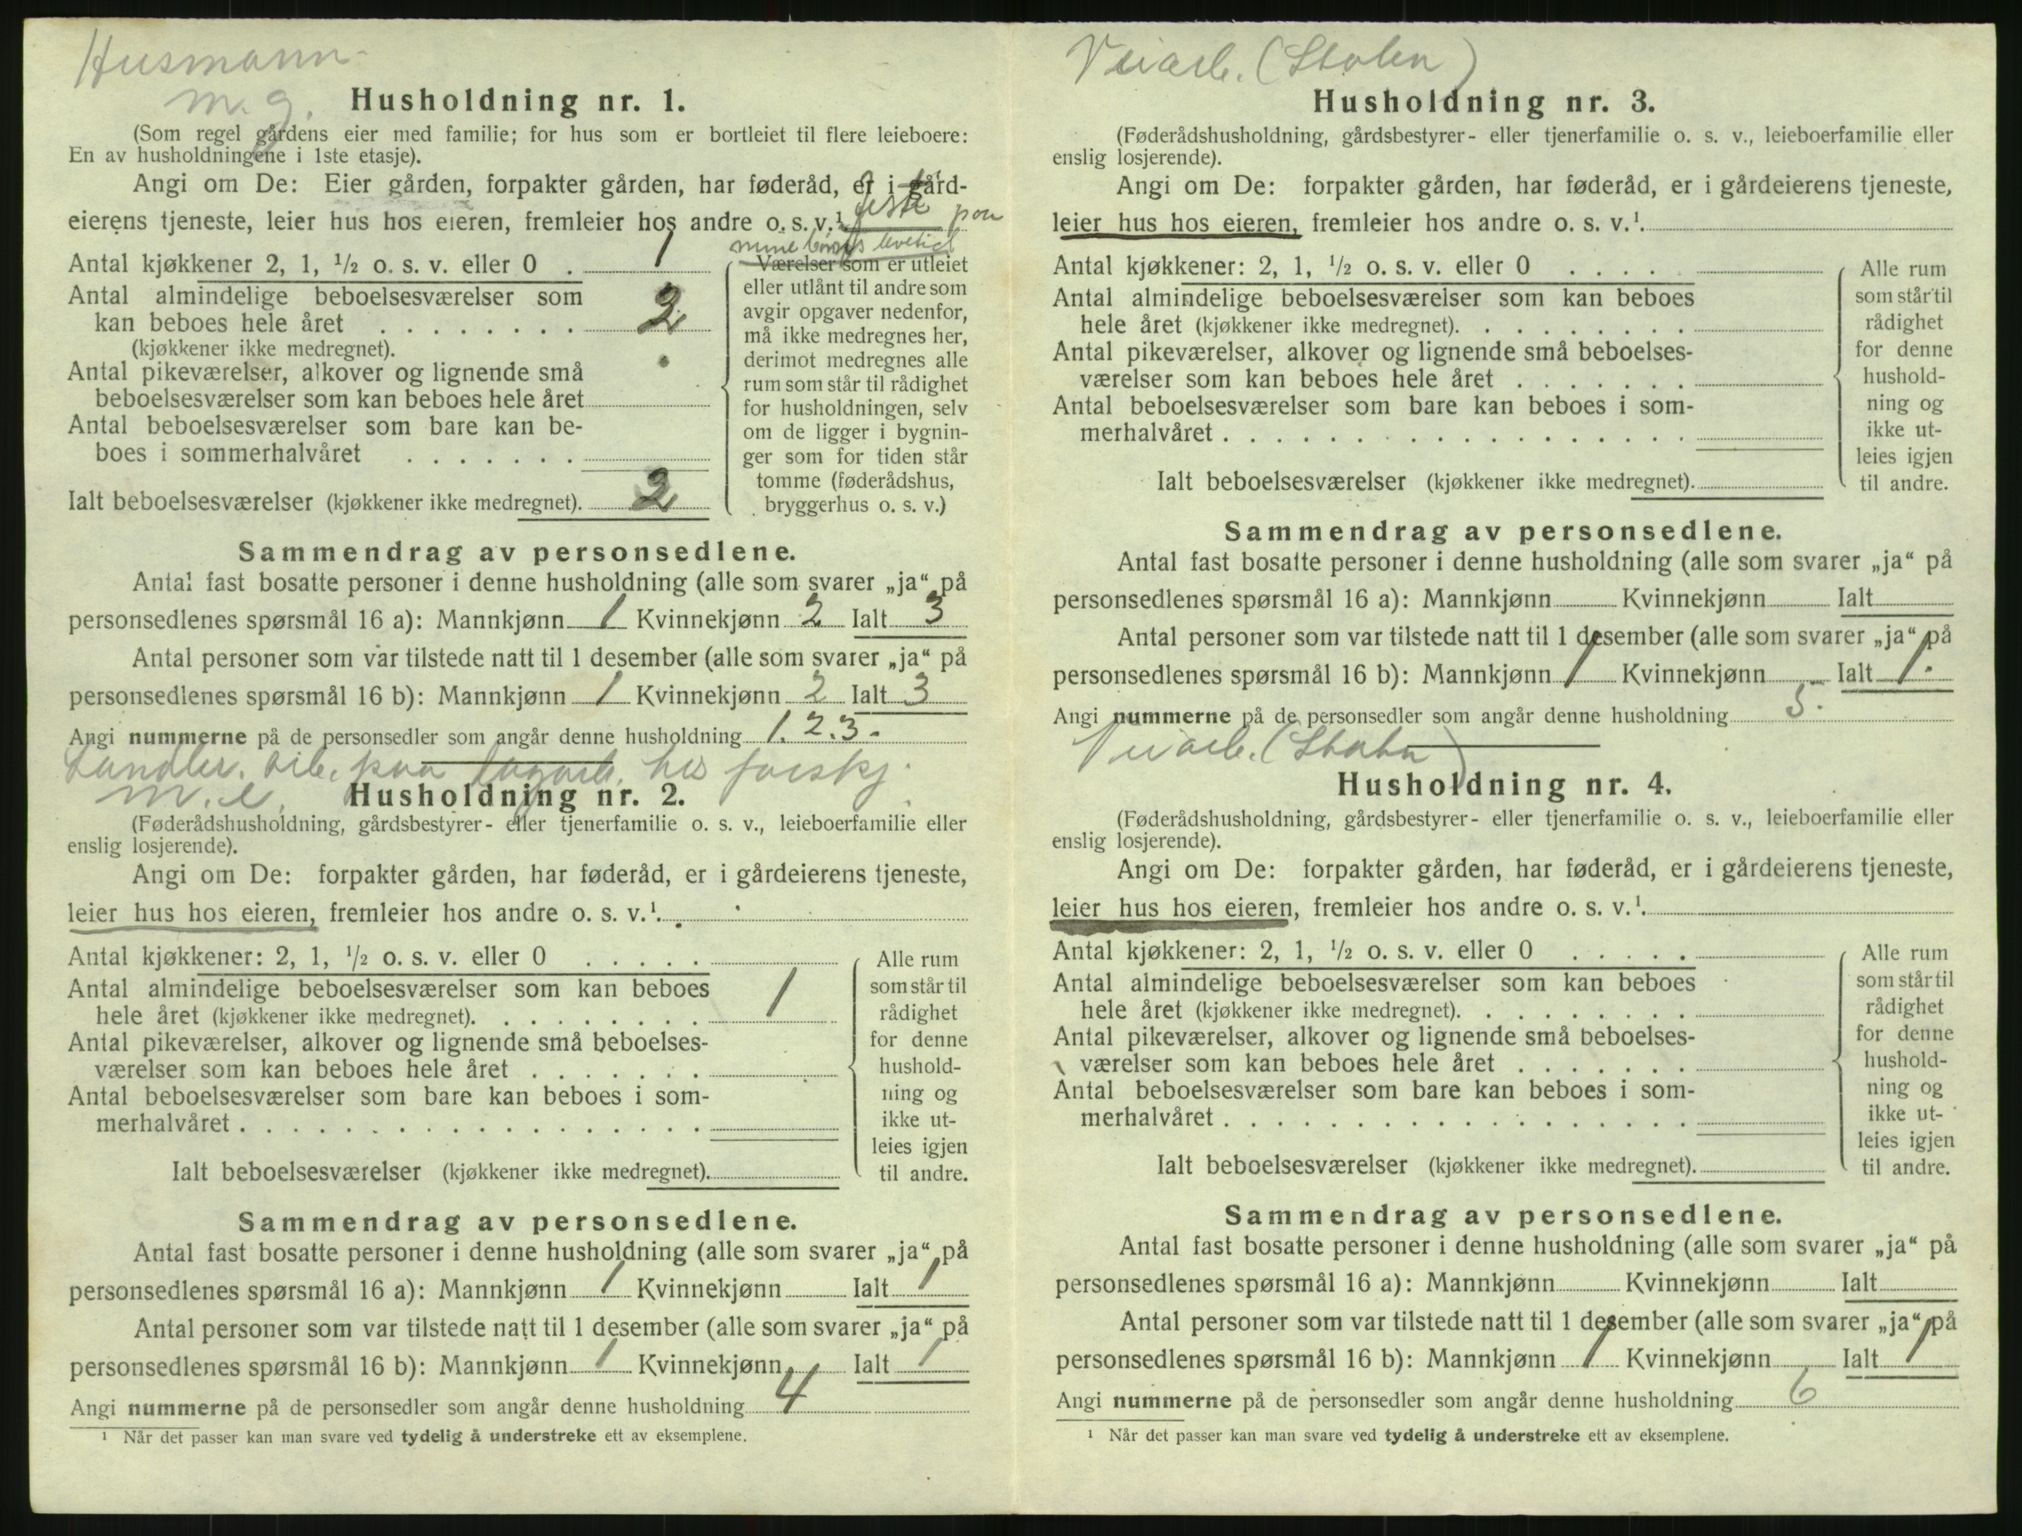 Husmann
m. g.
Husholdning nr. 1.
(Som regel gårdens eier med familie; for hus som er bortleiet til flere leieboere:
En av husholdningene i 1ste etasje).
Angi om De: Eier gården, forpakter gården, har føderåd, er i gård-
eierens tjeneste, leier hus hos eieren, fremleier hos andre o. s. v.¹ feste paa
mine levetid
Antal kjøkkener 2, 1, ½ o. s. v. eller 0 . 1
Antal almindelige beboelsesværelser som
kan beboes hele året . . . . . . . . 2
(kjøkkener ikke medregnet).
Antal pikeværelser, alkover og lignende små
beboelsesværelser som kan beboes hele året
Antal beboelsesværelser som bare kan be-
boes i sommerhalvåret . . . . . . .
Ialt beboelsesværelser (kjøkkener ikke medregnet). 2
Værelser som er utleiet
eller utlånt til andre som
avgir opgaver nedenfor,
må ikke medregnes her,
derimot medregnes alle
rum som står til rådighet
for husholdningen, selv
om de ligger i bygnin-
ger som for tiden står
tomme (føderådshus,
bryggerhus o. s. v.)
Sammendrag av personsedlene.
Antal fast bosatte personer i denne husholdning (alle som svarer „ja“ på
personsedlenes spørsmål 16 a): Mannkjønn 1 Kvinnekjønn 2 Ialt 3
Antal personer som var tilstede natt til 1 desember (alle som svarer „ja“ på
personsedlenes spørsmål 16 b): Mannkjønn 1 Kvinnekjønn 2 Ialt 3
Angi nummerne på de personsedler som angår denne husholdning 1. 2. 3.
Landbr. arb. paa dagarb. hos forskj.
m. e.
Husholdning nr. 2.
(Føderådshusholdning, gårdsbestyrer- eller tjenerfamilie o. s. v., leieboerfamilie eller
enslig losjerende).
Angi om De: forpakter gården, har føderåd, er i gårdeierens tjeneste,
leier hus hos eieren, fremleier hos andre o. s. v.¹.
Antal kjøkkener: 2, 1, ½ o. s. v. eller 0 . . . . .
Antal almindelige beboelsesværelser som kan beboes
hele året (kjøkkener ikke medregnet). . . . . . . . . 1
Antal pikeværelser, alkover og lignende små beboelses-
værelser som kan beboes hele året . . . . . . .
Antal beboelsesværelser som bare kan beboes i som-
merhalvåret . . . . . . . . . . . . . . . . . .
Ialt beboelsesværelser (kjøkkener ikke medregnet).
Alle rum
som står til
rådighet
for denne
hushold-
ning og
ikke ut-
leies igjen
til andre.
Sammendrag av personsedlene.
Antal fast bosatte personer i denne husholdning (alle som svarer „ja“ på
personsedlenes spørsmål 16 a): Mannkjønn 1 Kvinnekjønn Ialt 1
Antal personer som var tilstede natt til 1 desember (alle som svarer „ja“ på
personsedlenes spørsmål 16 b): Mannkjønn 1 Kvinnekjønn Ialt 1
Angi nummerne på de personsedler som angår denne husholdning 4
¹ Når det passer kan man svare ved tydelig å understreke ett av eksemplene.
Veiarb. (Staten)
Husholdning nr. 3.
(Føderådshusholdning, gårdsbestyrer- eller tjenerfamilie o. s. v., leieboerfamilie eller
enslig losjerende).
Angi om De: forpakter gården, har føderåd, er i gårdeierens tjeneste,
leier hus hos eieren, fremleier hos andre o. s. v.¹.
Antal kjøkkener: 2, 1, ½ o. s. v. eller 0 . . . .
Antal almindelige beboelsesværelser som kan beboes
hele året (kjøkkener ikke medregnet). . . . . . . . .
Antal pikeværelser, alkover og lignende små beboelses-
værelser som kan beboes hele året . . . . . . .
Antal beboelsesværelser som bare kan beboes i som-
merhalvåret . . . . . . . . . . . . . . . . . .
Ialt beboelsesværelser (kjøkkener ikke medregnet).
Alle rum
som står til
rådighet
for denne
hushold-
ning og
ikke ut-
leies igjen
til andre.
Sammendrag av personsedlene.
Antal fast bosatte personer i denne husholdning (alle som svarer „ja“ på
personsedlenes spørsmål 16 a): Mannkjønn Kvinnekjønn Ialt
Antal personer som var tilstede natt til 1 desember (alle som svarer „ja“ på
personsedlenes spørsmål 16 b): Mannkjønn 1 Kvinnekjønn Ialt 1.
Angi nummerne på de personsedler som angår denne husholdning 5.
Veiarb. (Staten)
Husholdning nr. 4.
(Føderådshusholdning, gårdsbestyrer- eller tjenerfamilie o. s. v., leieboerfamilie eller
enslig losjerende).
Angi om De: forpakter gården, har føderåd, er i gårdeierens tjeneste,
leier hus hos eieren, fremleier hos andre o. s. v.¹.
Antal kjøkkener: 2, 1, ½ o. s. v. eller 0 . . . . .
Antal almindelige beboelsesværelser som kan beboes
hele året (kjøkkener ikke medregnet). . . . . . . . .
Antal pikeværelser, alkover og lignende små beboelses-
værelser som kan beboes hele året . . . . . . .
Antal beboelsesværelser som bare kan beboes i som-
merhalvåret . . . . . . . . . . . . . . . . . .
Ialt beboelsesværelser (kjøkkener ikke medregnet).
Alle rum
som står til
rådighet
for denne
hushold-
ning og
ikke ut-
leies igjen
til andre.
Sammendrag av personsedlene.
Antal fast bosatte personer i denne husholdning (alle som svarer „ja“ på
personsedlenes spørsmål 16 a): Mannkjønn Kvinnekjønn Ialt
Antal personer som var tilstede natt til 1 desember (alle som svarer „ja“ på
personsedlenes spørsmål 16 b): Mannkjønn 1 Kvinnekjønn Ialt 1
Angi nummerne på de personsedler som angår denne husholdning 6
¹ Når det passer kan man svare ved tydelig å understreke ett av eksemplene.